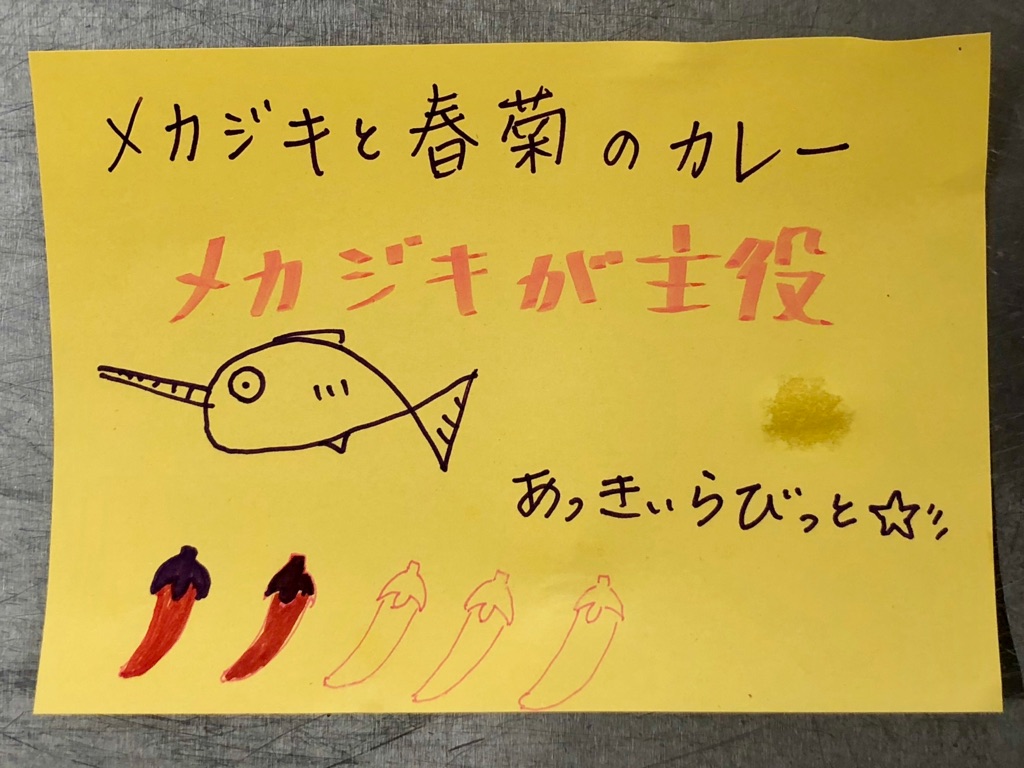 メカジキと春菊のカレー
メカジキが主役
あっきぃらびっと☆